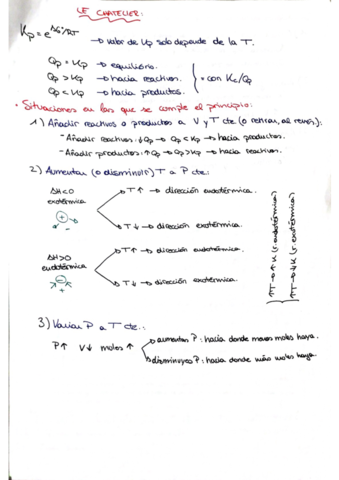 LE CHATELIER:
Kp = e^ΔG°/RT → valor de Kp solo depende de la T.
Qp = Kp → equilibrio.
Qp > Kp → hacia reactivos. = con Kc/Qp
Qp < Kp → hacia productos.
• Situaciones en las que se cumple el principio:
1) Añadir reactivos o productos a V y T cte (o retirar, al revés):
- Añadir reactivos: ↓Qp → Qp < Kp → hacia productos.
- Añadir productos: ↑Qp → Qp > Kp → hacia reactivos.
2) Aumentar (o disminuir) T a P cte:
ΔH<0
exotérmica
T↑ → dirección endotérmica.
T↓ → dirección exotérmica.
ΔH>0
endotérmica
T↑ → dirección endotérmica.
T↓ → dirección exotérmica.
↑T → ↑K (r. endotérmica)
↑T → ↓K (r. exotérmica)
3) Variar P a T cte:
P↑ V↓ moles ↑
aumentar P: hacia donde menos moles haya.
disminuye P: hacia donde más moles haya